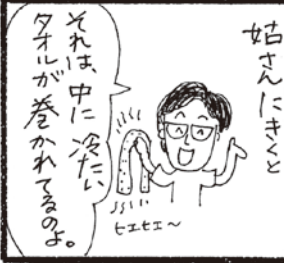 姑さんにきくと
それは、中に冷たい
タオルが巻かれてるのよ。
ヒエヒエ〜